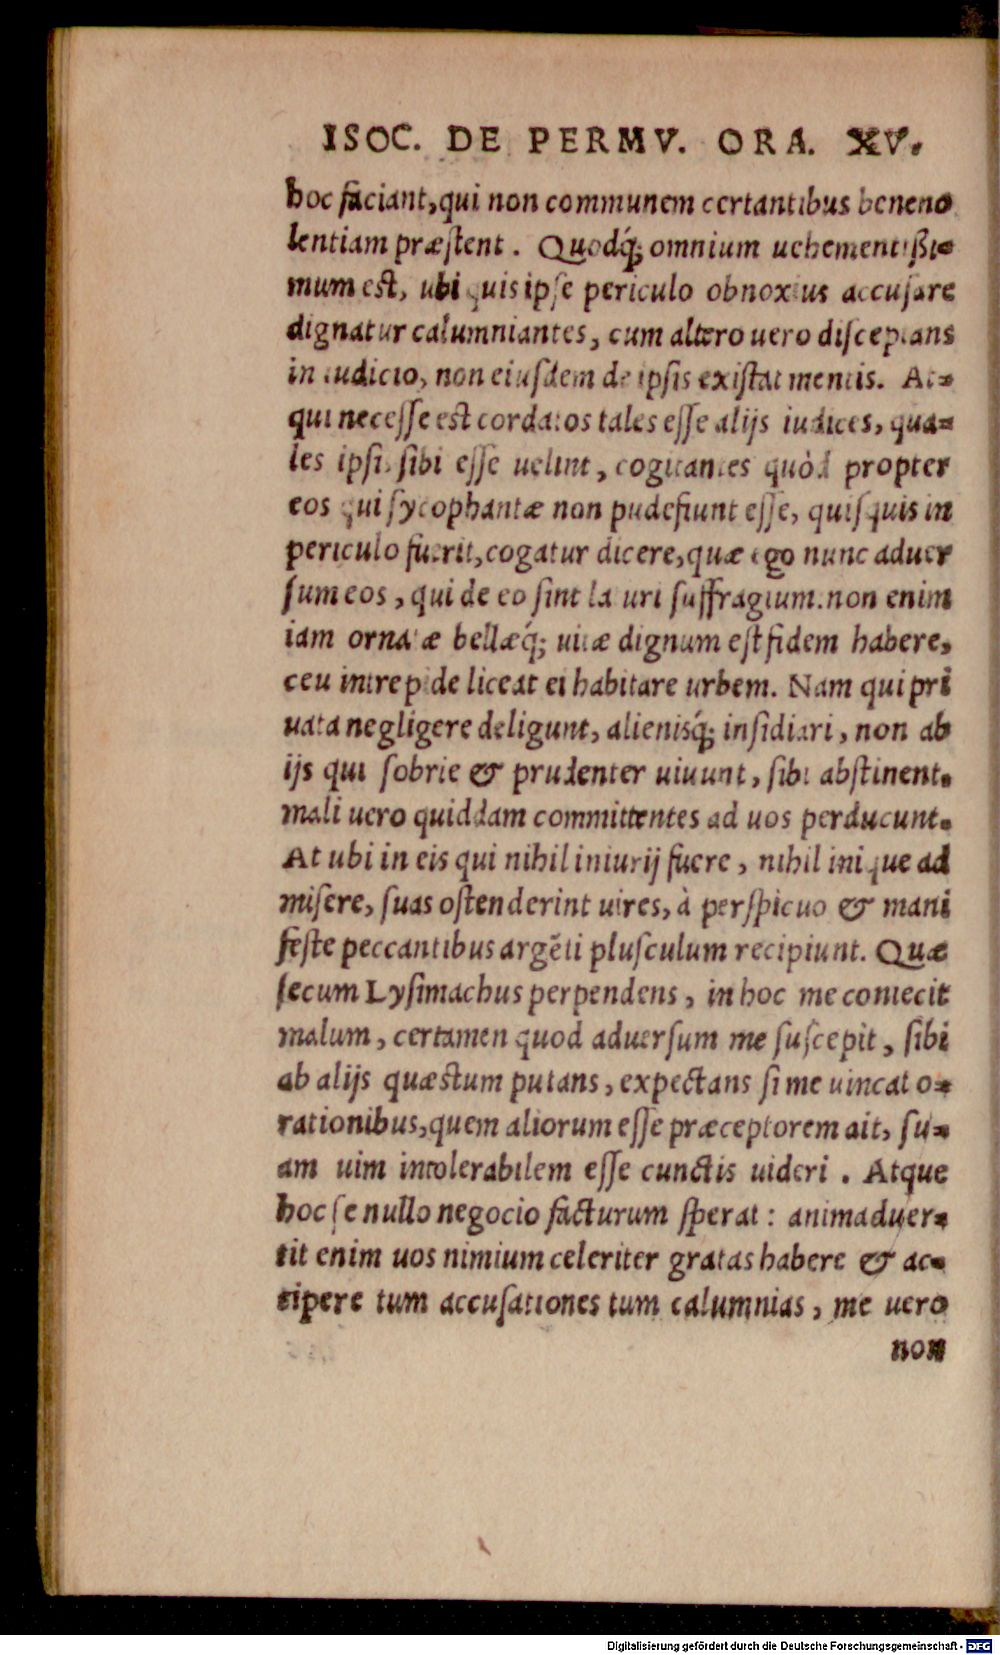 ISOC. DE PERMV. ORA. XV.
hoc faciant, qui non communem certantibus beneuo
lentiam præstent. Quodq́; omnium uehementißi-
mum est, ubi quis ipse periculo obnoxius accusare
dignatur calumniantes, cum altero uero disceptans
in iudicio, non eiusdem de ipsis existat mentis. At-
qui necesse est cordatos tales esse alijs iudices, qua-
les ipsi sibi esse uelint, cogitantes quòd propter
eos qui sycophantæ non pudefiunt esse, quisquis in
periculo fuerit, cogatur dicere, quæ ego nunc aduer
sum eos, qui de eo sint laturi suffragium. non enim
iam ornatæ bellæq́; uitæ dignum est fidem habere,
ceu intrepide liceat ei habitare urbem. Nam qui pri
uata negligere deligunt, alienisq́; insidiari, non ab
ijs qui sobrie & prudenter uiuunt, sibi abstinent.
mali uero quiddam committentes ad uos perducunt.
At ubi in eis qui nihil iniurij fuere, nihil inique ad
misere, suas ostenderint uires, à perspicuo & mani
feste peccantibus argẽti plusculum recipiunt. Quæ
secum Lysimachus perpendens, in hoc me coniecit
malum, certamen quod aduersum me suscepit, sibi
ab alijs quæstum putans, expectans si me uincat o-
rationibus, quem aliorum esse præceptorem ait, su-
am uim intolerabilem esse cunctis uideri. Atque
hoc se nullo negocio facturum sperat: animaduer-
tit enim uos nimium celeriter gratas habere & ac-
cipere tum accusationes tum calumnias, me uero
non
Digitalisierung gefördert durch die Deutsche Forschungsgemeinschaft - DFG